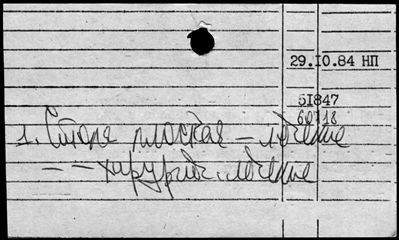 29.10.84 НП
51847
60718
1. Стопа плоская – лечение
– – хирургич. лечение